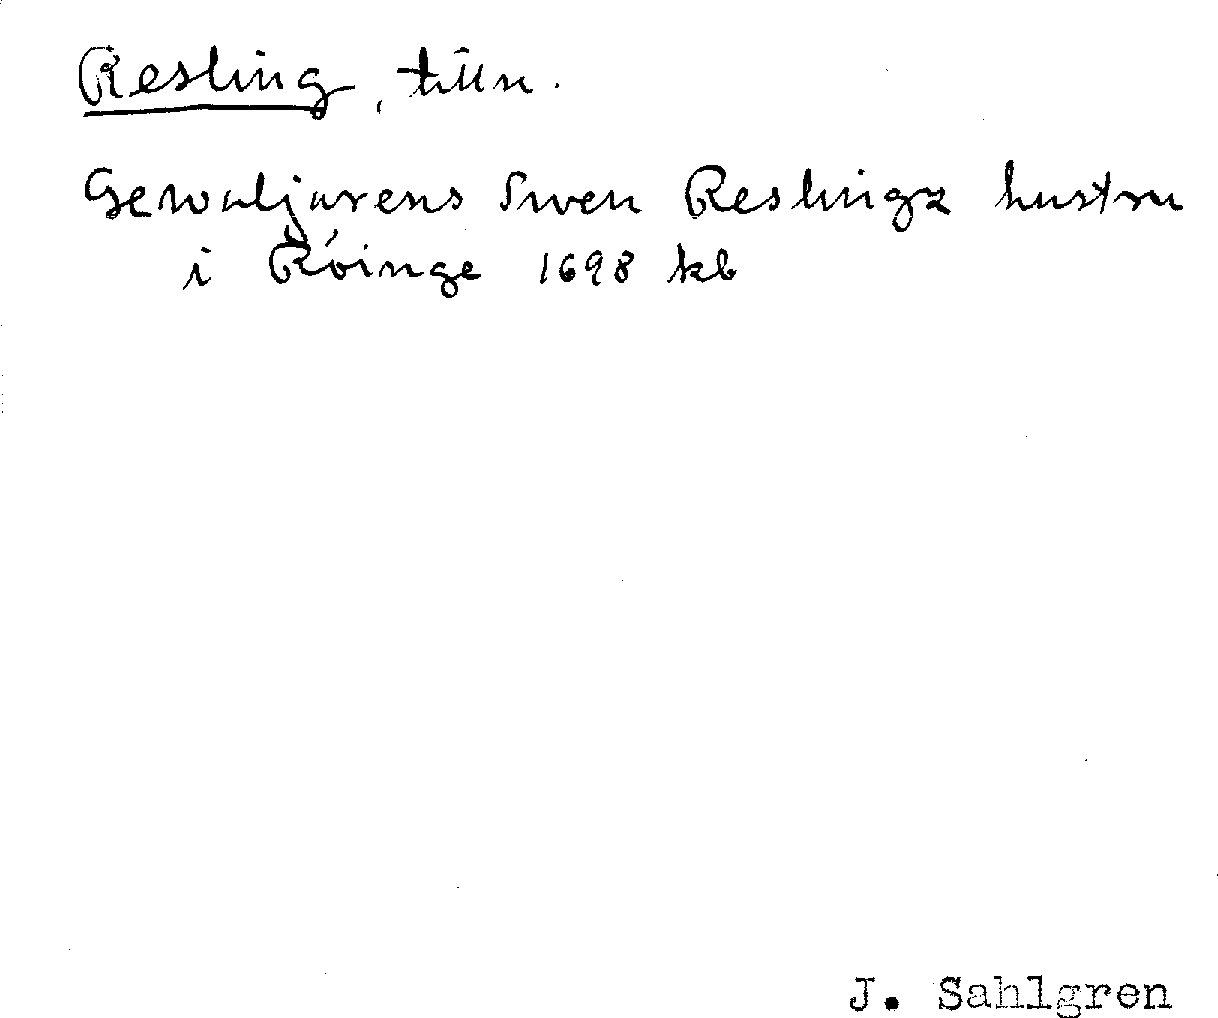 Resling, tilln.
Gewaljarens Swen Reslingz hustru
i Röinge 1698 kb
J. Sahlgren